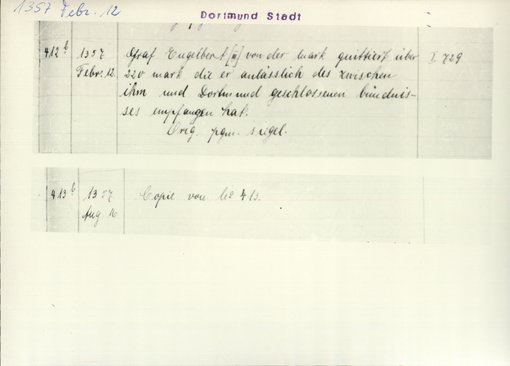 1357 Febr. 12
Dortmund Stadt
412b 1357 Graf Engelbert [II] von der Mark quittiert über I. 729
Febr. 12. 220 mark die er anlässlich des zwischen
ihm und Dortmund geschlossenen bündnis-
ses empfangen hat.
Orig. pgm. siegel.
413b 1357 Copie von No 413.
Aug 16